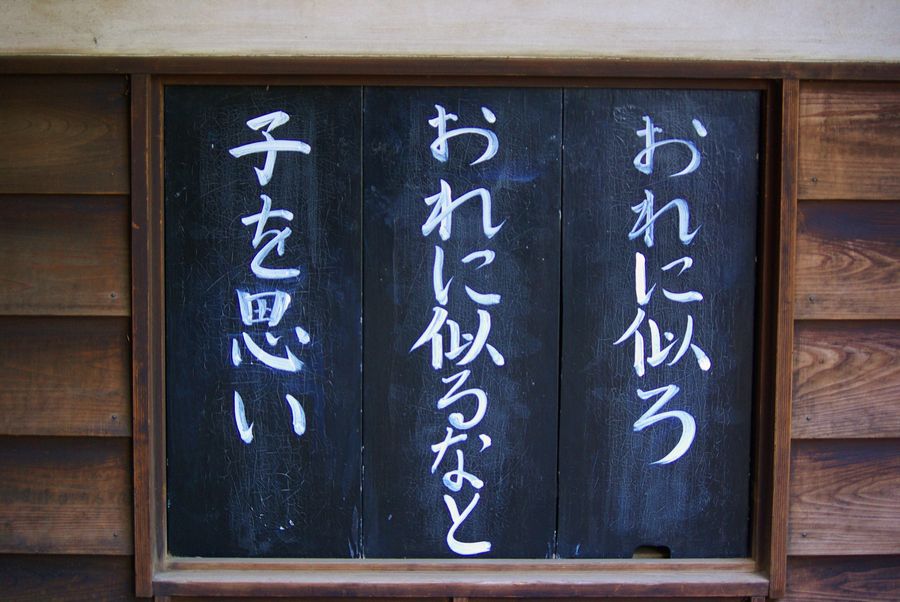 おれに似ろ
おれに似るなと
子を思い